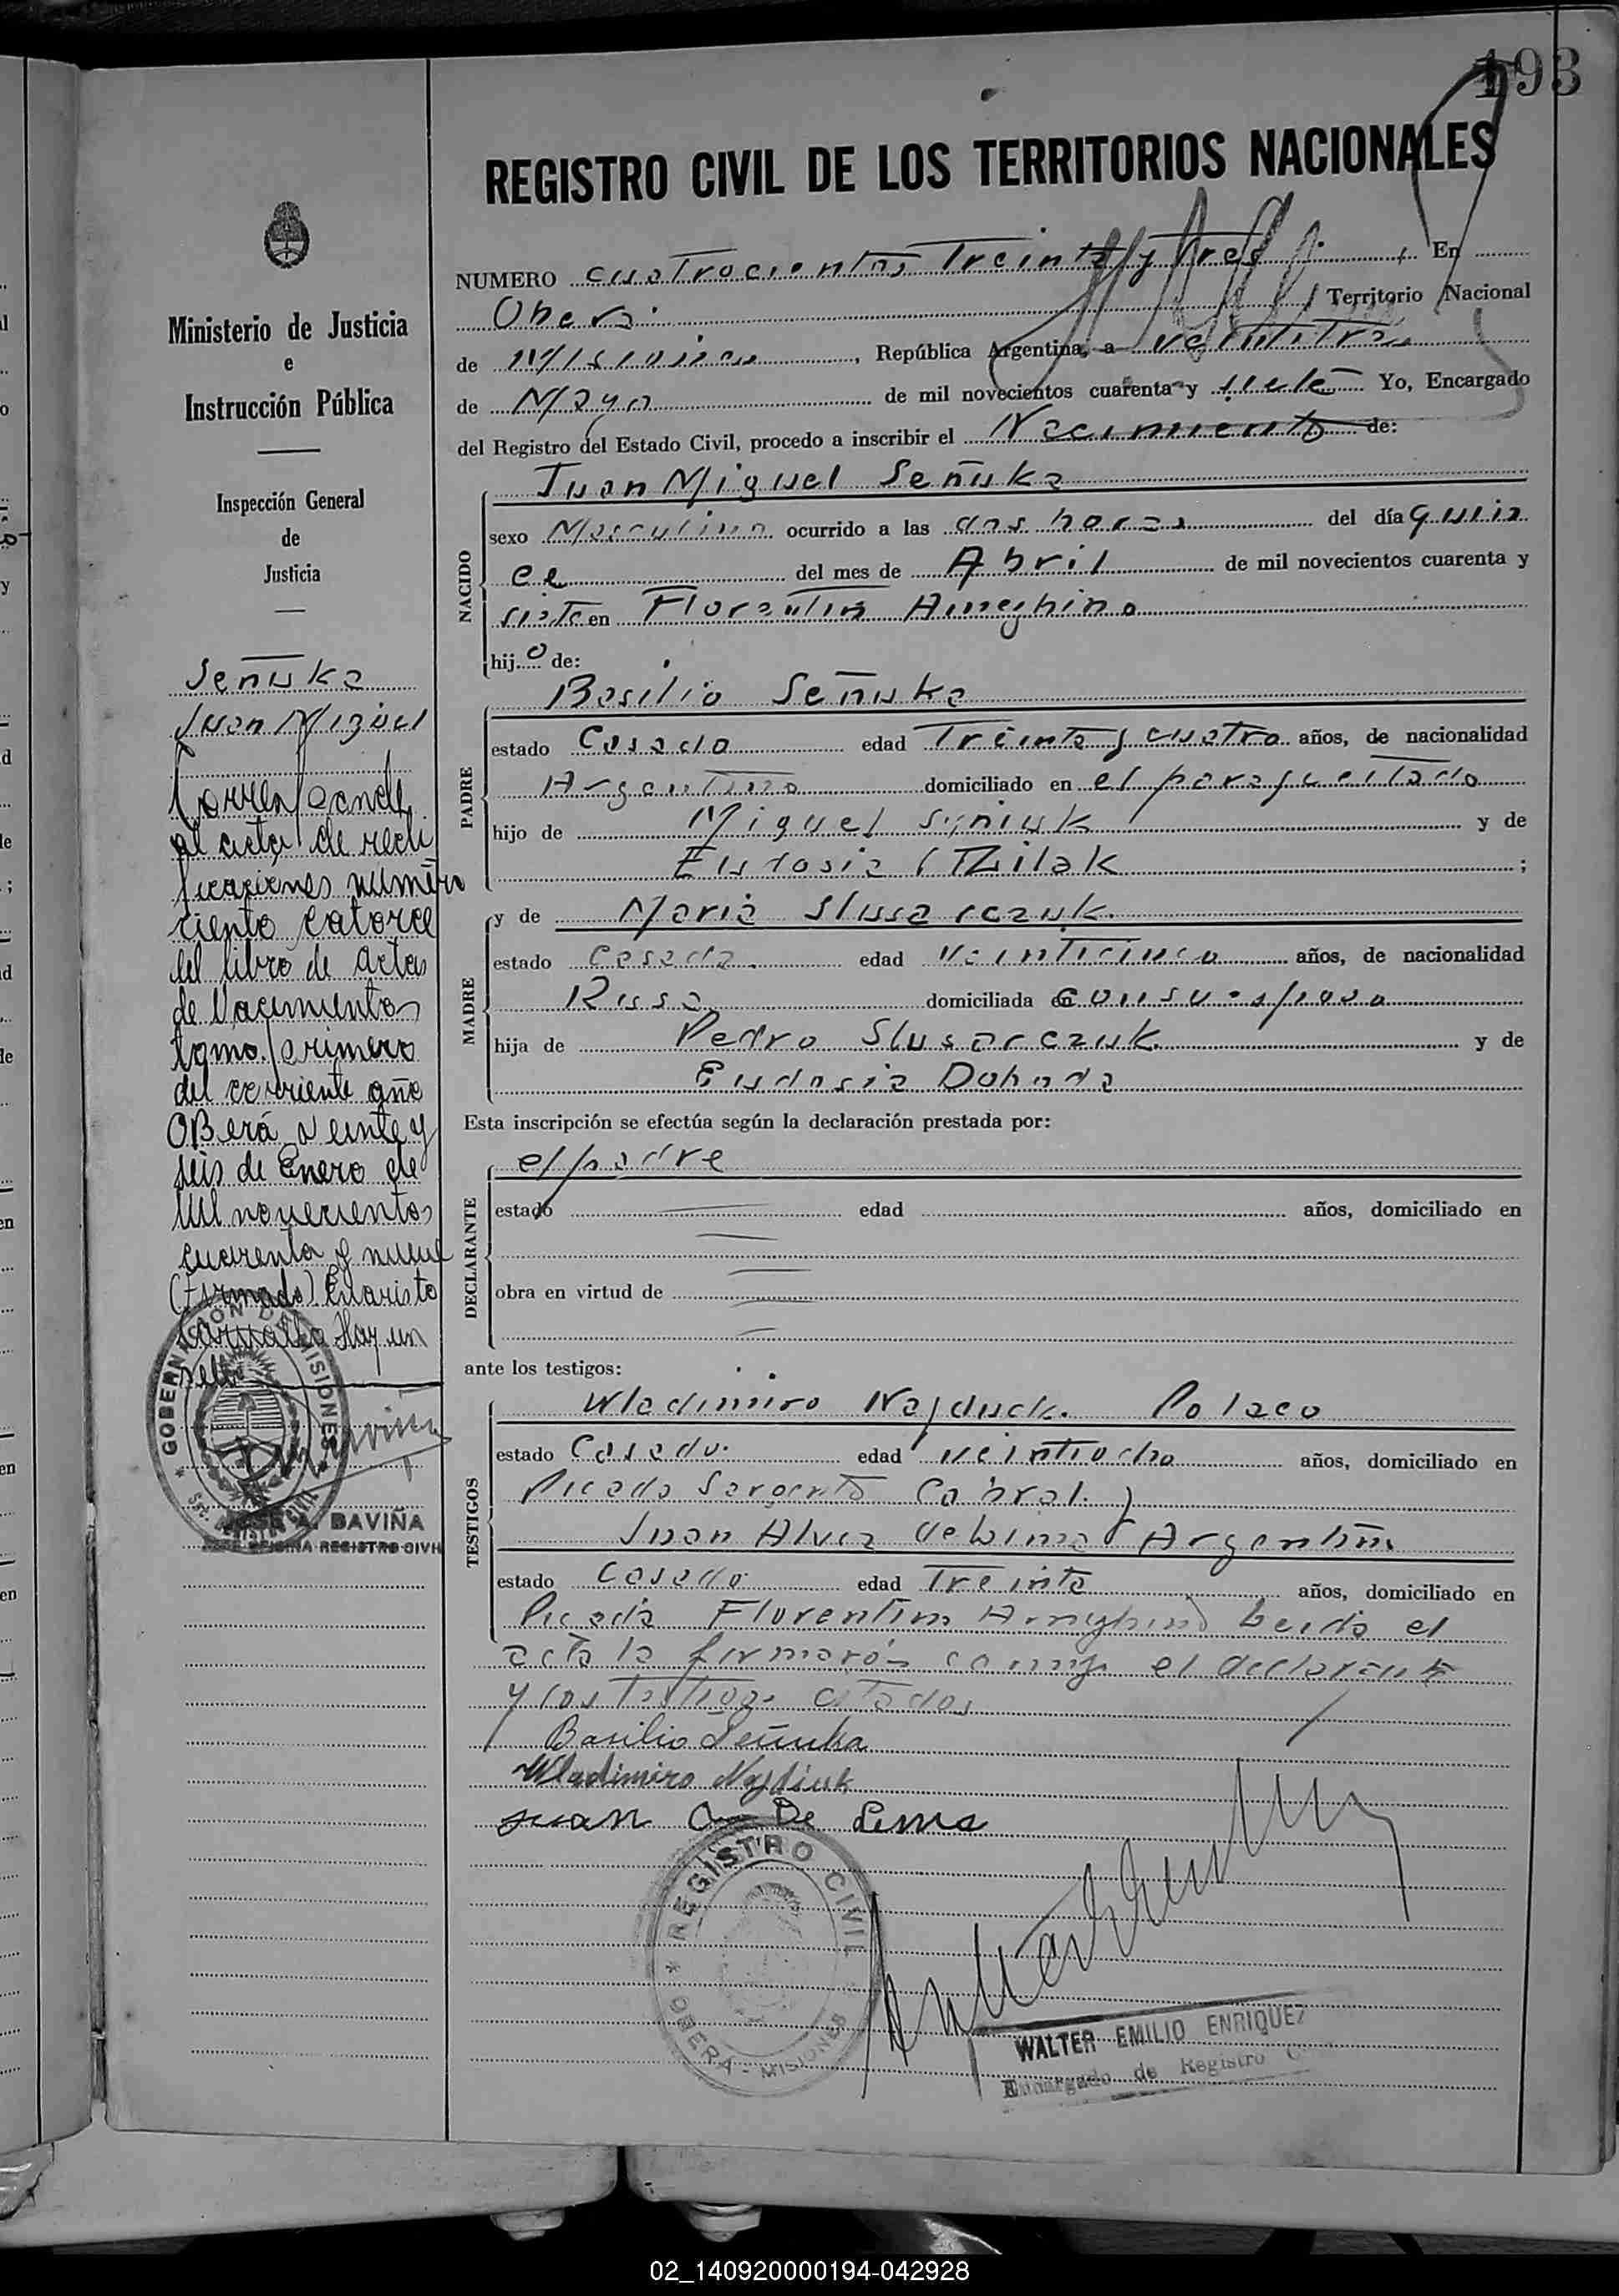 193
REGISTRO CIVIL DE LOS TERRITORIOS NACIONALES
NUMERO cuatrocientos Treinta y Tres En
Oberá Territorio Nacional
de Misiones, República Argentina, a veintitrés
de Mayo de mil novecientos cuarenta y siete Yo, Encargado
del Registro del Estado Civil, procedo a inscribir el Nacimiento de:
Ministerio de Justicia
e
Instrucción Pública
Inspección General
de
Justicia
Señuka
Juan Miguel
Corresponde
al acta de recti
ficaciones número
ciento catorce
del libro de actas
de Nacimientos
tomo primero
del corriente año
OBerá veinte y
seis de Enero de
Mil novecientos
cuarenta y nueve
(Firmado) Evaristo
Hay un
sello
GOBERNACION DE MISIONES
A. BAVIÑA
JEFE OFICINA REGISTRO CIVIL
NACIDO
Juan Miguel Señuka
sexo Masculino ocurrido a las dos horas del día quin
ce del mes de Abril de mil novecientos cuarenta y
siete en Florentin Ameghino
hijo de:
PADRE
Basilio Señuka
estado Casado edad Treinta y cuatro años, de nacionalidad
Argentino domiciliado en el paraje citado
hijo de Miguel Syniuk y de
Eudosia ;
MADRE
y de Maria Slusarczuk
estado Casada edad veinticinco años, de nacionalidad
Rusa domiciliada en con su esposo
hija de Pedro Slusarczuk y de
Eudosia Dohoda
Esta inscripción se efectúa según la declaración prestada por:
DECLARANTE
el padre
estado edad años, domiciliado en
obra en virtud de
ante los testigos:
TESTIGOS
Wladimiro Najduck. Polaco
estado Casado. edad veintiocho años, domiciliado en
Picada Sargento Cabral.
Juan Alvez de Lima Argentino
estado Casado edad Treinta años, domiciliado en
Picada Florentino Ameghino Leida el
acta la firmarón conmigo el declarante
y los Testigos citados
Basilio Señuka
Wladimiro Najdiuk
Juan De Lima
REGISTRO CIVIL
OBERA - MISIONES
WALTER EMILIO ENRIQUEZ
Encargado de Registro C
02_140920000194-042928